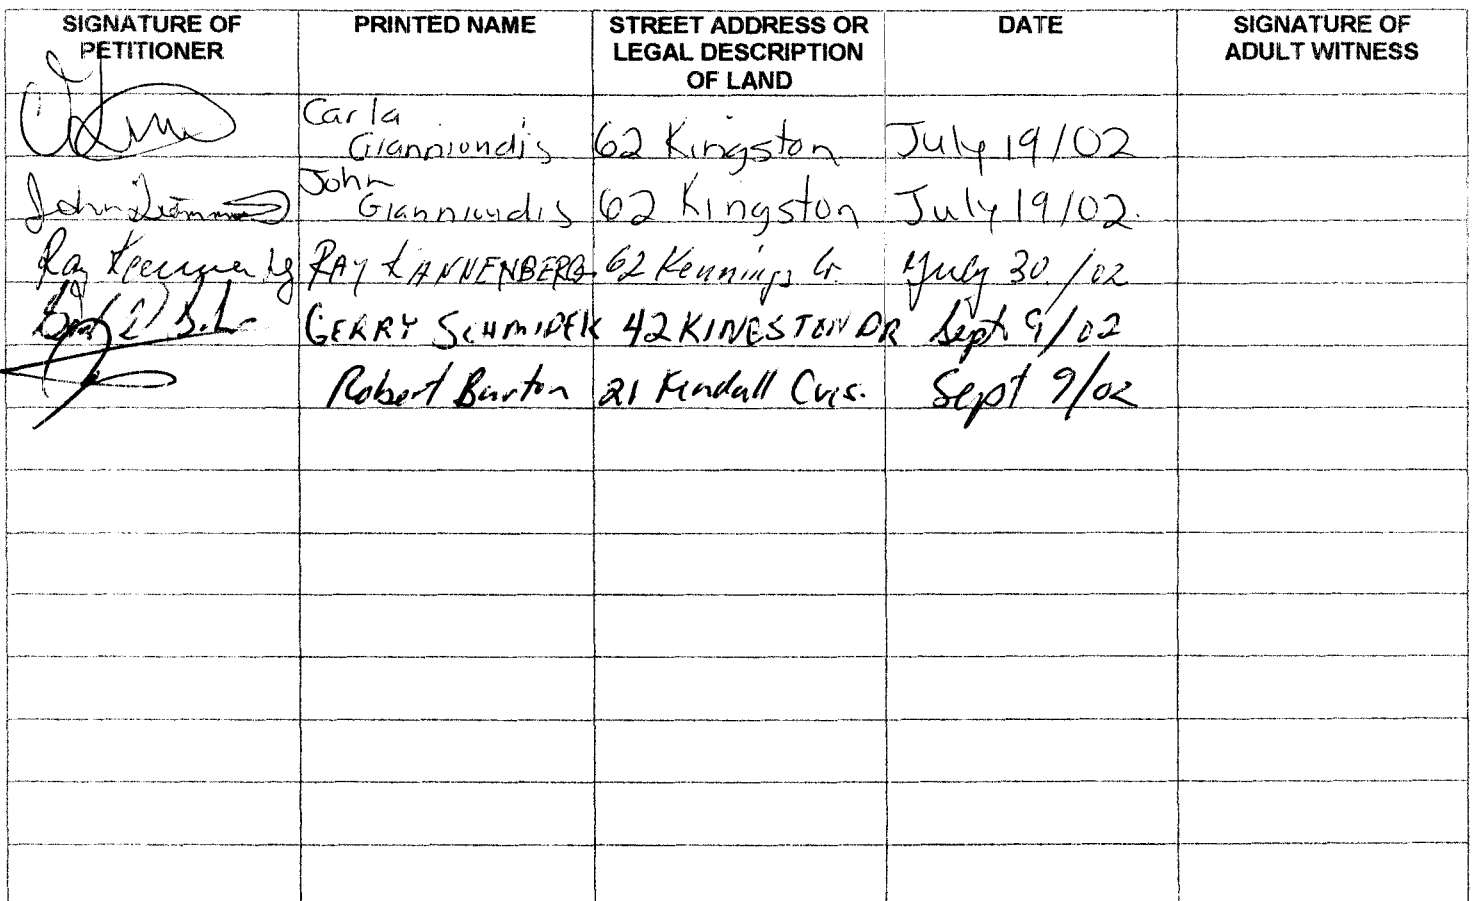 SIGNATURE OF
PETITIONER
PRINTED NAME
STREET ADDRESS OR
LEGAL DESCRIPTION
OF LAND
DATE
SIGNATURE OF
ADULT WITNESS
Carla
Gianniondis 62 Kingston July 19/02
John
John Gianniondis 62 Kingston July 19/02.
Ray RAY KANNENBERG 62 Kennings Cr. July 30/02
GERRY SCHMIDEK 42 KINGSTON DR Sept 9/02
Robert Burton 21 Kendall Cres. Sept 9/02